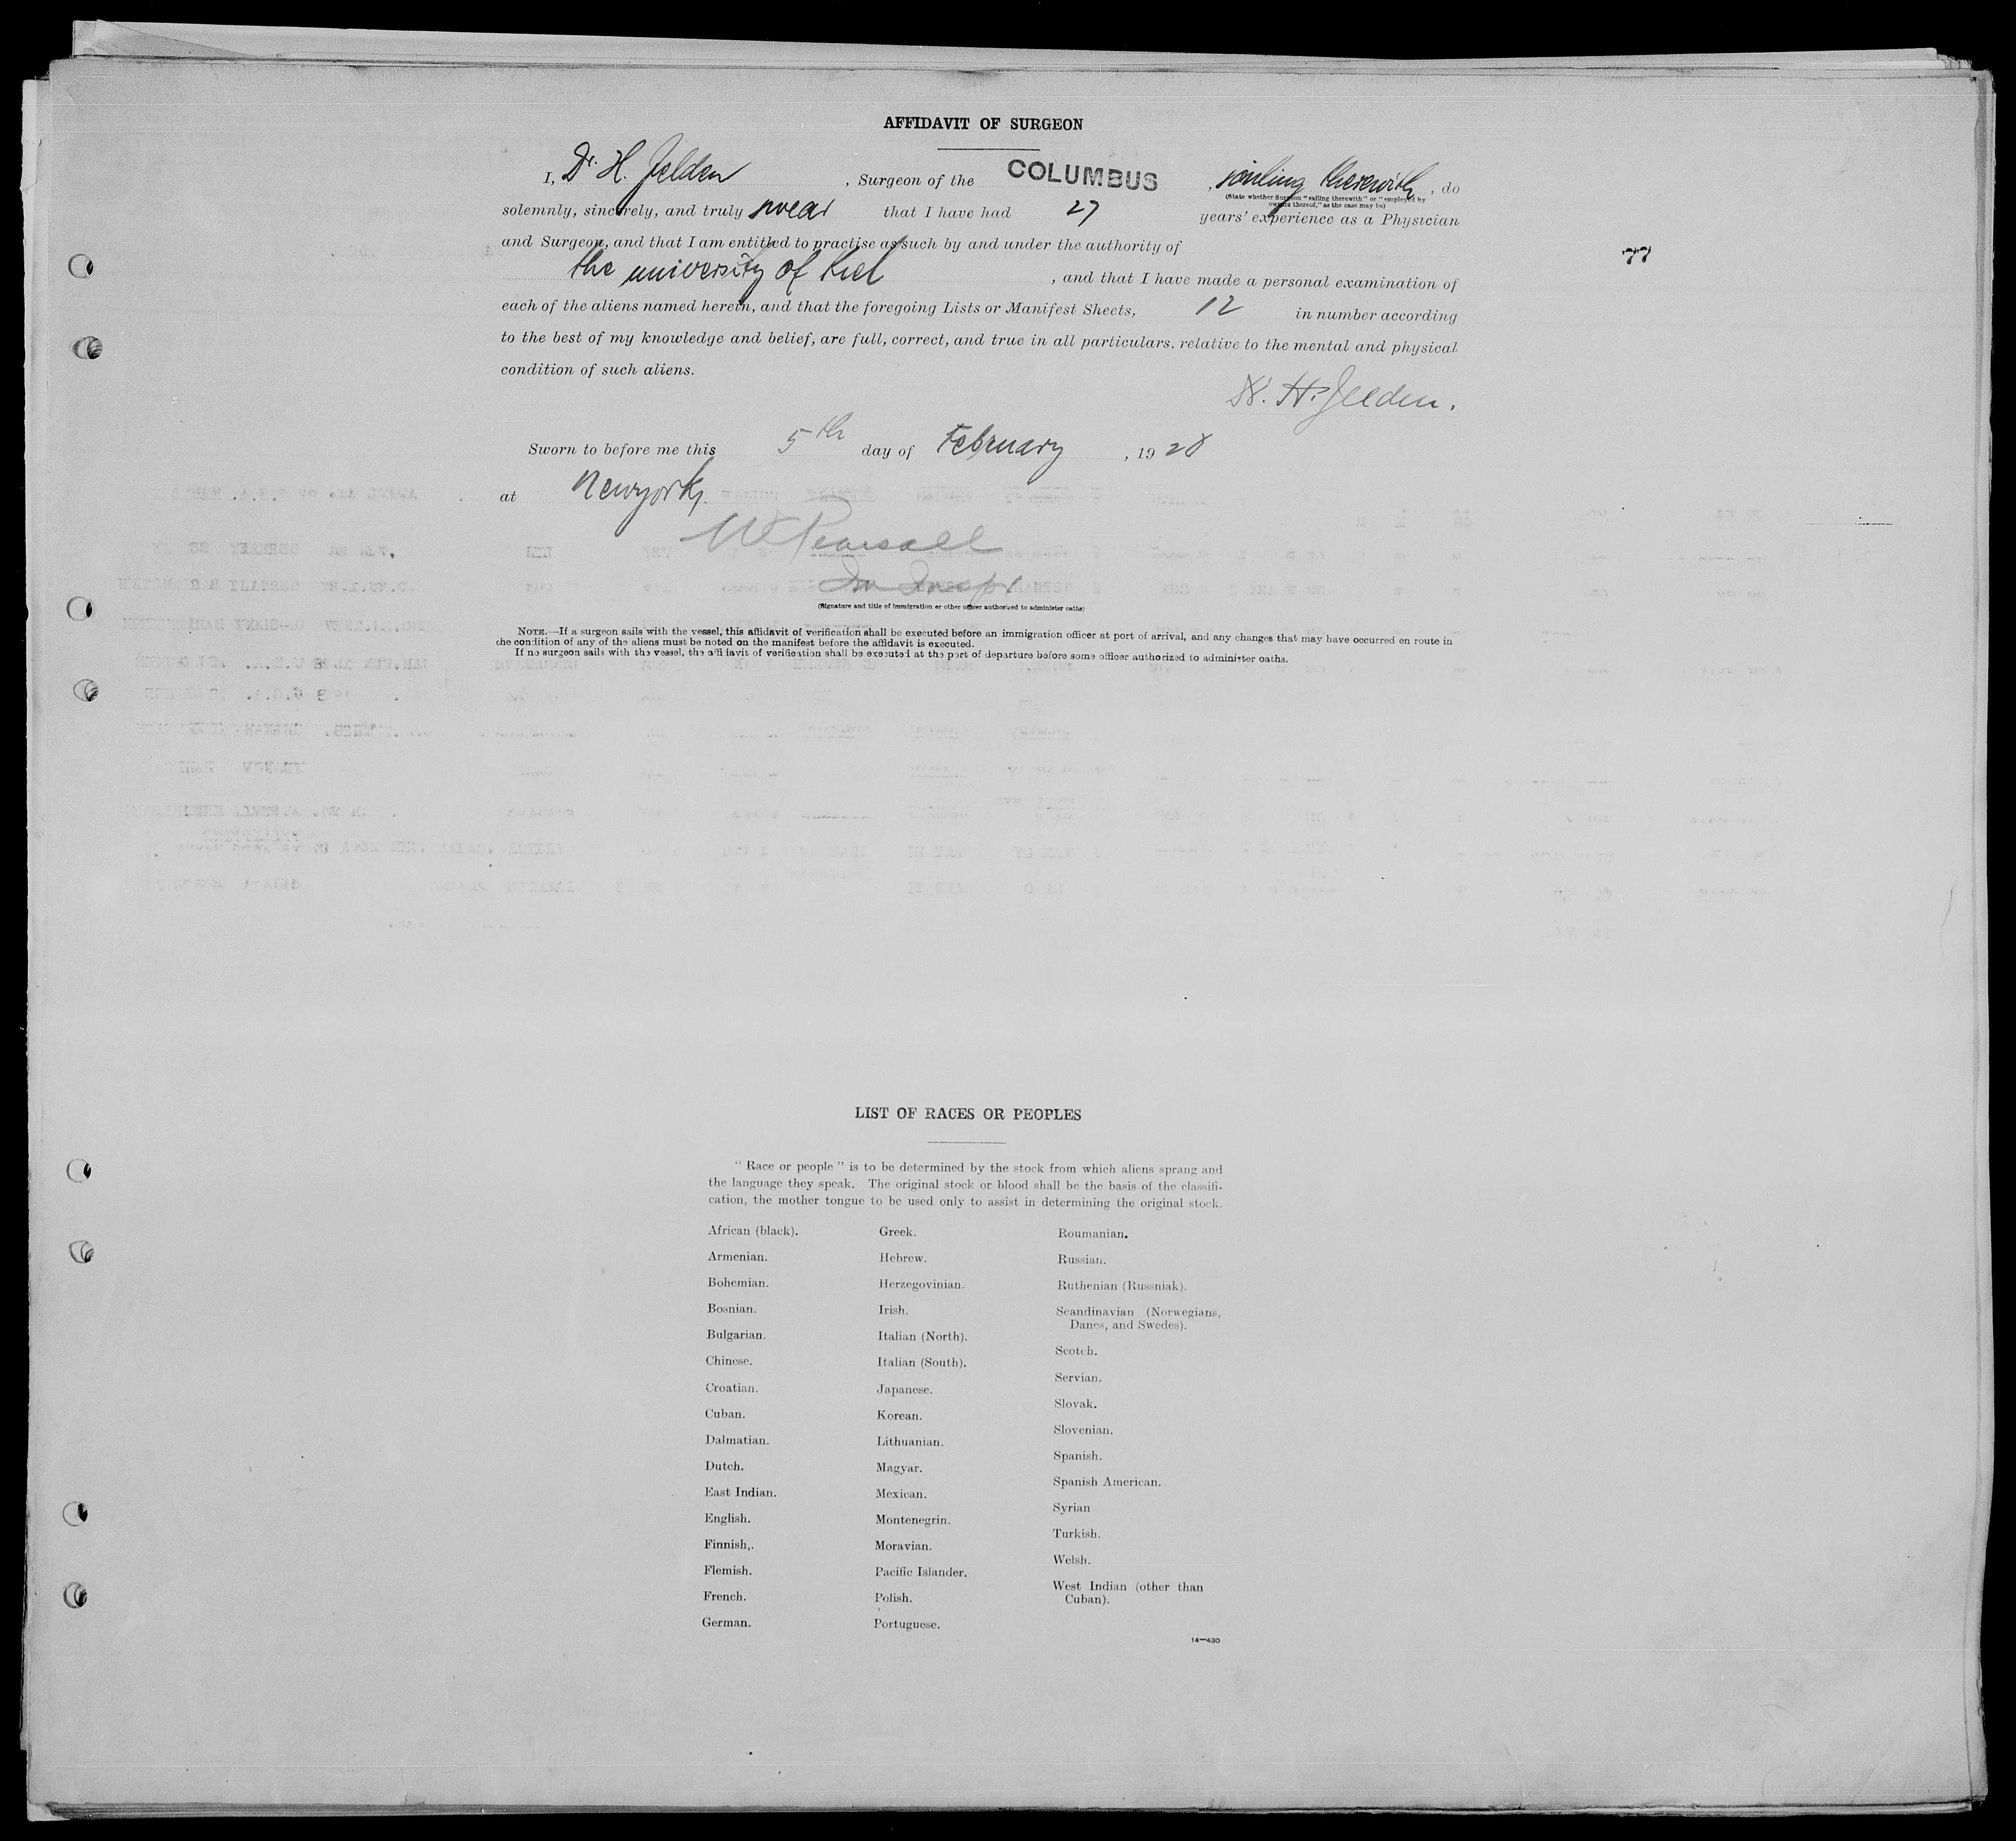 AFFIDAVIT OF SURGEON
I, Dr. H. Jelden, Surgeon of the COLUMBUS, sailing therewith, do
(State whether Surgeon "sailing therewith" or "employed by
owners thereof," as the case may be)
solemnly, sincerely, and truly swear that I have had 27 years' experience as a Physician
and Surgeon, and that I am entitled to practise as such by and under the authority of
77
the university of Kiel, and that I have made a personal examination of
each of the aliens named herein, and that the foregoing Lists or Manifest Sheets, 12 in number according
to the best of my knowledge and belief, are full, correct, and true in all particulars, relative to the mental and physical
condition of such aliens.
Dr. H. Jelden.
Sworn to before me this 5th day of February, 1928
at Newyork.
Pearsall
Im Inspr
(Signature and title of immigration or other officer authorized to administer oaths)
NOTE.—If a surgeon sails with the vessel, this affidavit of verification shall be executed before an immigration officer at port of arrival, and any changes that may have occurred en route in
the condition of any of the aliens must be noted on the manifest before the affidavit is executed.
If no surgeon sails with the vessel, the affidavit of verification shall be executed at the port of departure before some officer authorized to administer oaths.
LIST OF RACES OR PEOPLES
"Race or people" is to be determined by the stock from which aliens sprang and
the language they speak. The original stock or blood shall be the basis of the classifi-
cation, the mother tongue to be used only to assist in determining the original stock.
African (black).
Armenian.
Bohemian.
Bosnian.
Bulgarian.
Chinese.
Croatian.
Cuban.
Dalmatian.
Dutch.
East Indian.
English.
Finnish,.
Flemish.
French.
German.
Greek.
Hebrew.
Herzegovinian.
Irish.
Italian (North).
Italian (South).
Japanese.
Korean.
Lithuanian.
Magyar.
Mexican.
Montenegrin.
Moravian.
Pacific Islander.
Polish.
Portuguese.
Roumanian.
Russian.
Ruthenian (Russniak).
Scandinavian (Norwegians,
Danes, and Swedes).
Scotch.
Servian.
Slovak.
Slovenian.
Spanish.
Spanish American.
Syrian
Turkish.
Welsh.
West Indian (other than
Cuban).
14—430